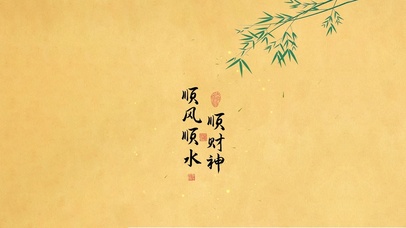 顺风顺水
顺财神